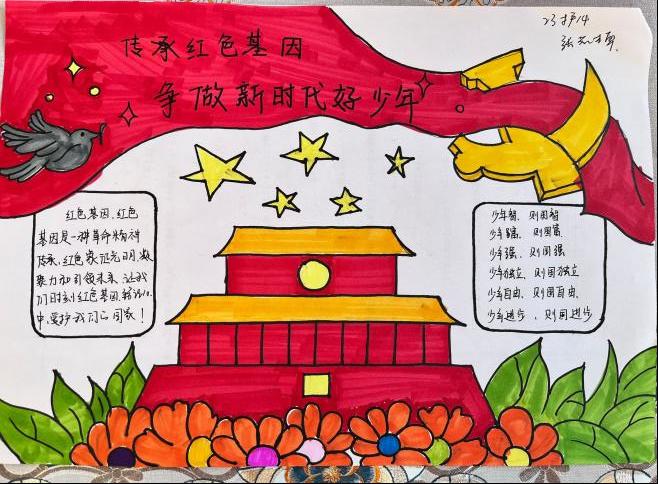 23护14
传承红色基因
争做新时代好少年。
红色基因,红色
基因是一种革命精神
传承,红色象征光明,凝
聚力和引领未来,让我
们时刻红色基因
中,爱护我们的国家!
少年智,则国智
少年富,则国富,
少年强,则国强
少年独立,则国独立
少年自由,则国自由,
少年进步,则国进步